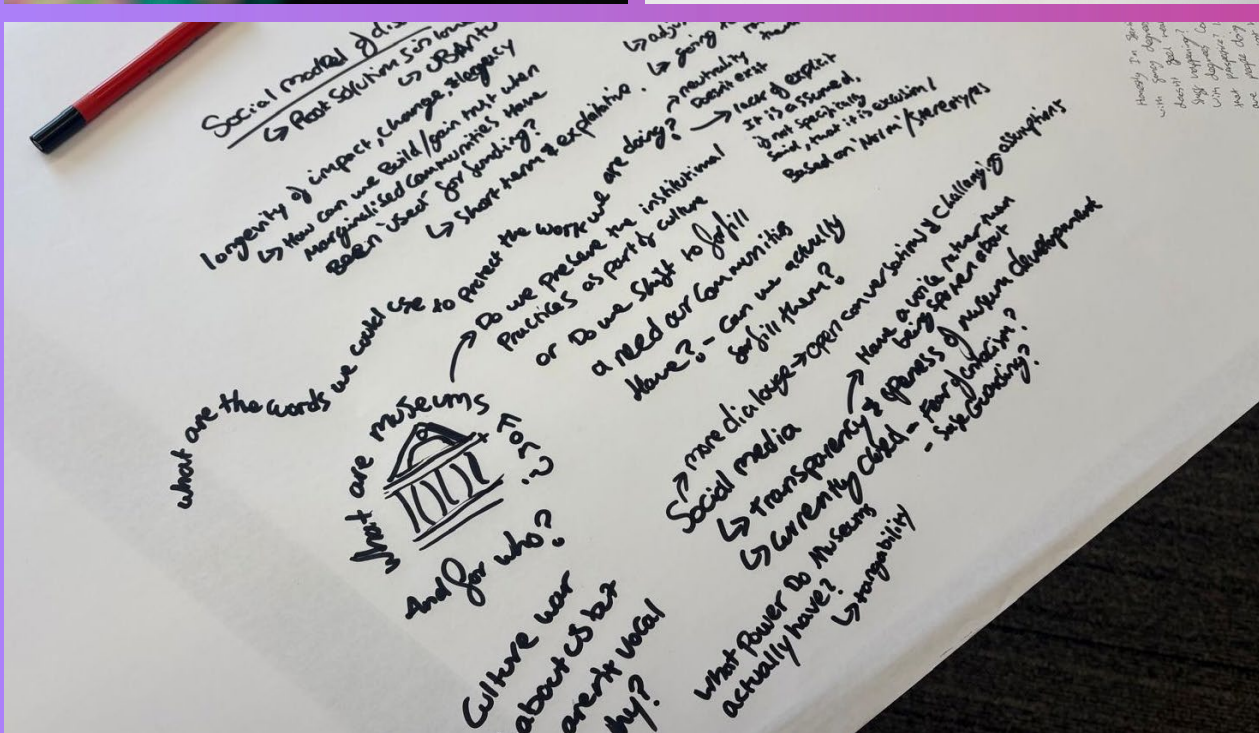 Social model of
↳ Post Solutions
longevity of impact, change, & legacy
↳ How can we Build/gain trust when
Marginalised communities Have
Been "used" for funding?
↳ Short term & exploitative.
↳
↳ going
what are the words we could use to protect the work we are doing?
→ neutrality
Doesn't exist
→ lack of explicit
It is assumed,
if not specifically
said, that it is exclusion /
Based on 'Norm' / Stereotypes
What are museums For?
And for who?
→ Do we preserve the institutional
Practices as part of culture
or Do we shift to forfill
a need our communities
Have? - can we actually
forfill them?
Social media
→ more dialouge → open conversations & challenging assumptions
↳ Transparency & openess of museum development
→ Have a voice rather than
being spoken about
↳ Currently closed - Fear of criticism?
- Safe Guarding?
What Power Do Museums
actually have?
↳ tangability
Culture war
about us but
aren't vocal
hy?